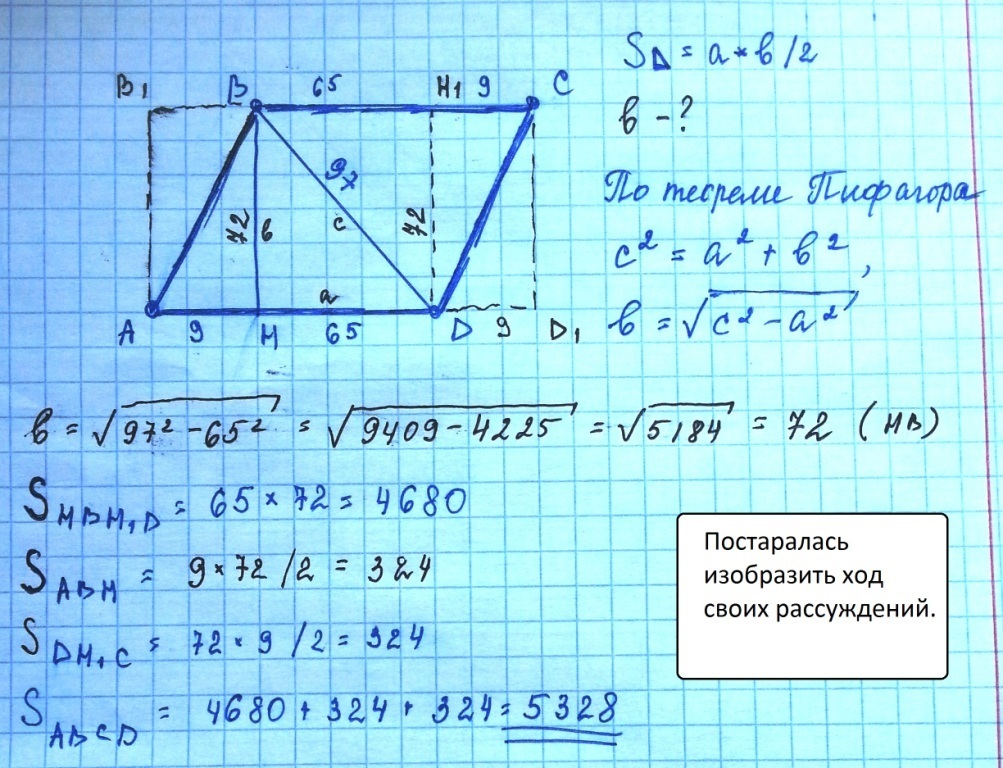 B₁ B 65 H₁ 9 C
97
72 в c 72
a
A 9 H 65 D 9 D₁
S△ = a * в / 2
в - ?
По теореме Пифагора
c² = a² + в²,
в = √(c² - a²)
в = √(97² - 65²) = √(9409 - 4225) = √5184 = 72 (HB)
S HBH₁D = 65 × 72 = 4680
S ABH = 9 × 72 / 2 = 324
S DH₁C = 72 × 9 / 2 = 324
S ABCD = 4680 + 324 + 324 = 5328
Постаралась
изобразить ход
своих рассуждений.